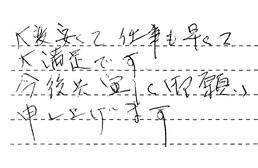 大変安くて仕事も早くて
大満足です
今後共宜しく御願い
申し上げます